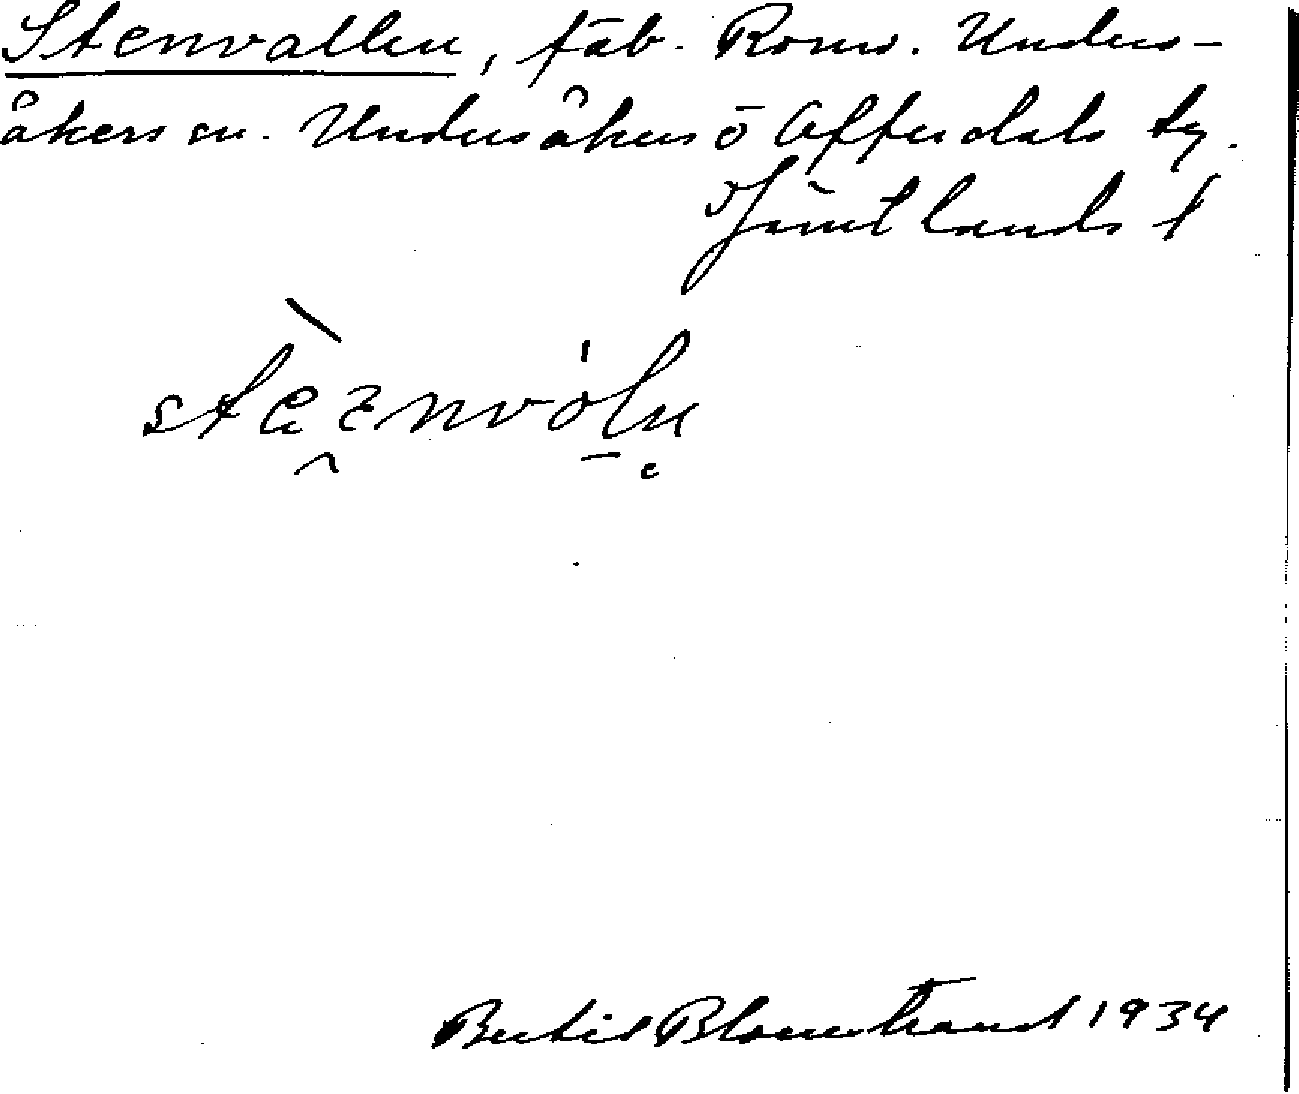 Stenvallen, fäb. Romo. Unders-
åkers sn. Undersåkers o Offerdals tg.
Jämtlands l
Bertil Blomstrand 1934